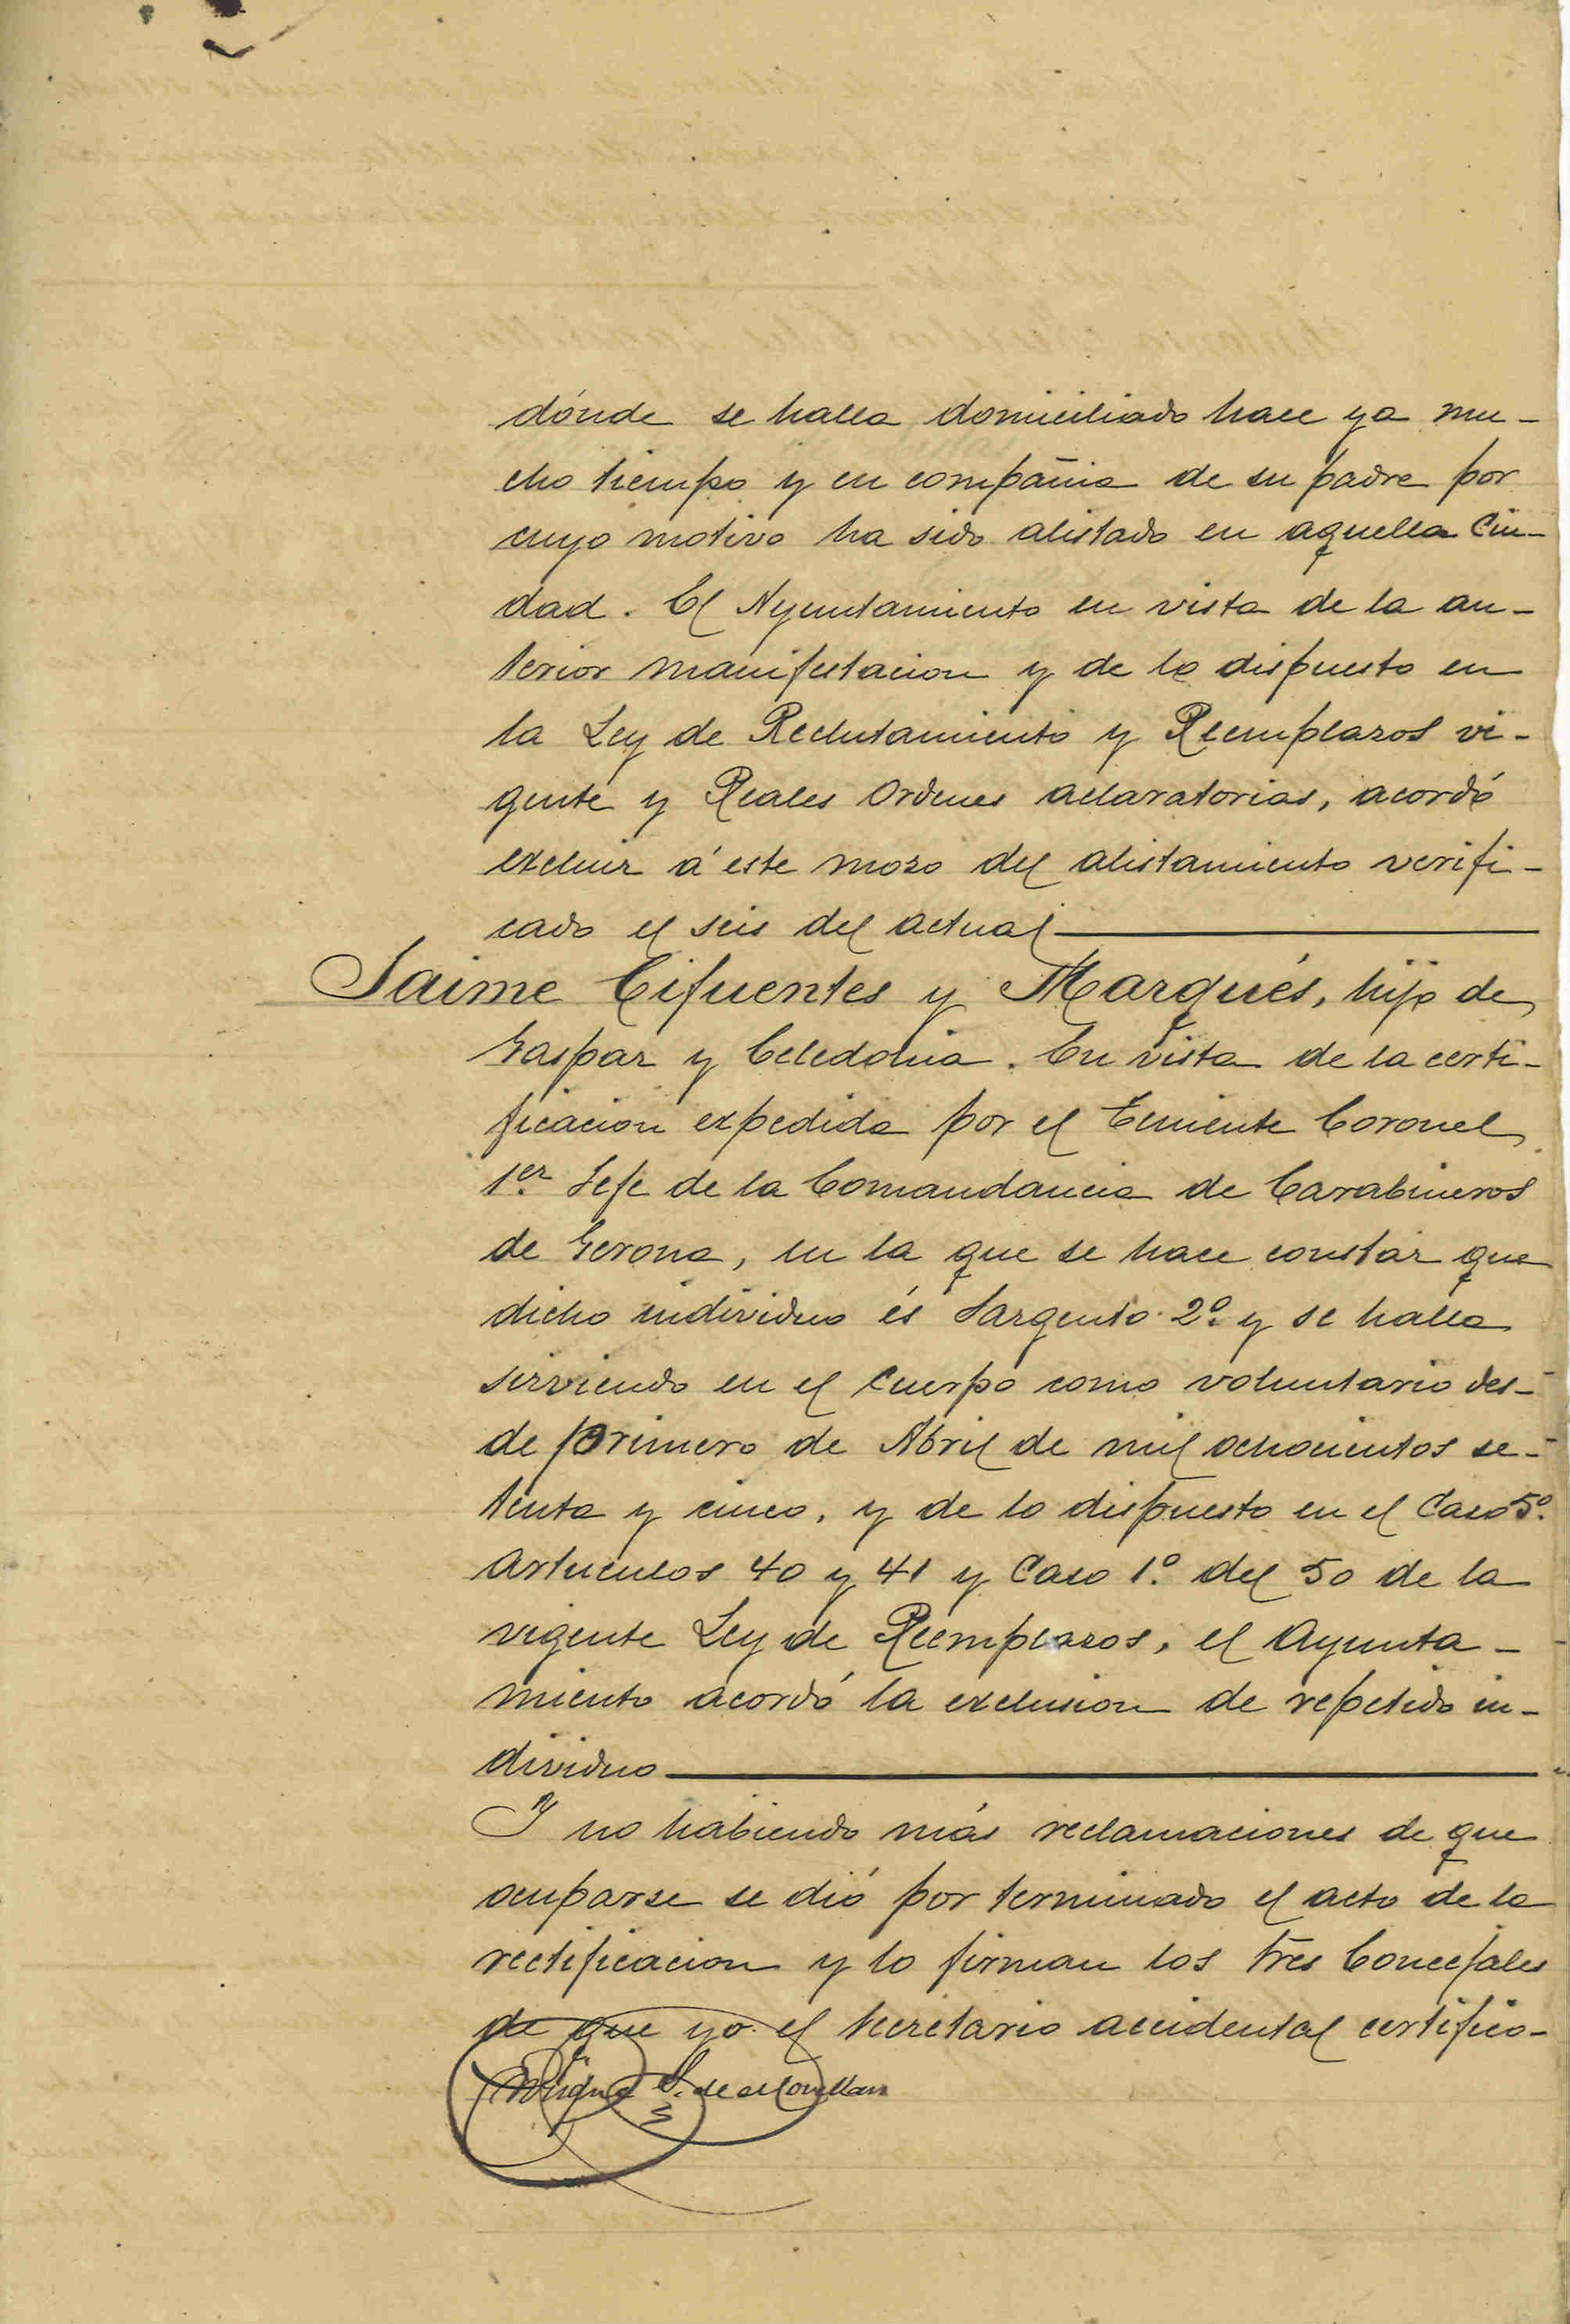 dónde se halla domiciliado hace ya mu-
cho tiempo y en compañia de su padre por
cuyo motivo ha sido alistado en aquella Ciu-
dad. El Ayuntamiento en vista de la an-
terior manifestacion y de lo dispuesto en
la Ley de Reclutamiento y Reemplazos vi-
gente y Reales Ordenes aclaratorias, acordó
excluir á este mozo del alistamiento verifi-
cado el seis del actual
Jaime Cifuentes y Marqués, hijo de
Gaspar y Celedonia. En vista de la certi-
ficacion expedida por el Teniente Coronel
1er Jefe de la Comandancia de Carabineros
de Gerona, en la que se hace constar que
dicho individuo és Sargento 2º y se halla
sirviendo en el Cuerpo como voluntario des-
de primero de Abril de mil ochocientos se-
tenta y cinco, y de lo dispuesto en el Caso 5º
Articulos 40 y 41 y Caso 1º del 50 de la
vigente Ley de Reemplazos, el Ayunta-
miento acordó la exclusion de repetido in-
dividuo
Y no habiendo más reclamaciones de que
ocuparse se dió por terminado el acto de la
rectificacion y lo firman los tres Concejales
de que yo el Secretario accidental certifico-